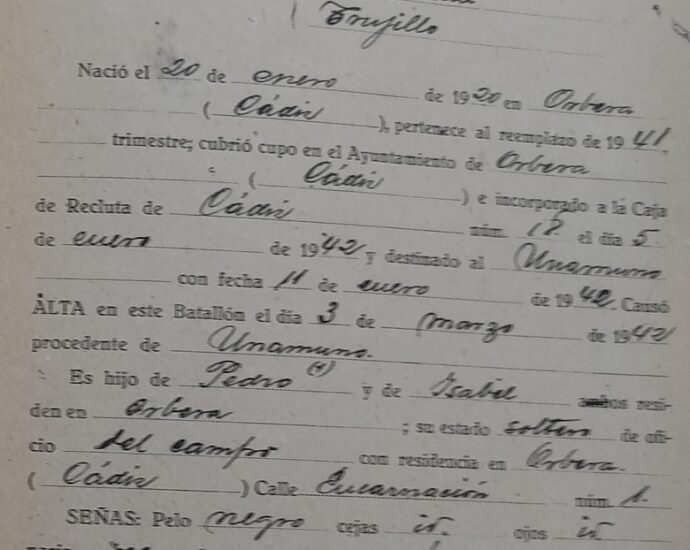 ( Trujillo
Nació el 20 de enero de 1920 en Orbera
( Cádiz ), pertenece al reemplazo de 1941.
trimestre; cubrió cupo en el Ayuntamiento de Orbera
( Cádiz ) e incorporado a la Caja
de Recluta de Cádiz núm. el día 5
de enero de 1942 y destinado al Unamuno
con fecha 11 de enero de 1942. Causó
ALTA en este Batallón el día 3 de marzo de 1942
procedente de Unamuno.
Es hijo de Pedro (1) y de Isabel resi-
den en Orbera ; su estado soltero de ofi-
cio del campo con residencia en Orbera.
( Cádiz ) Calle Encarnación núm. 1.
SEÑAS: Pelo negro cejas id. ojos id